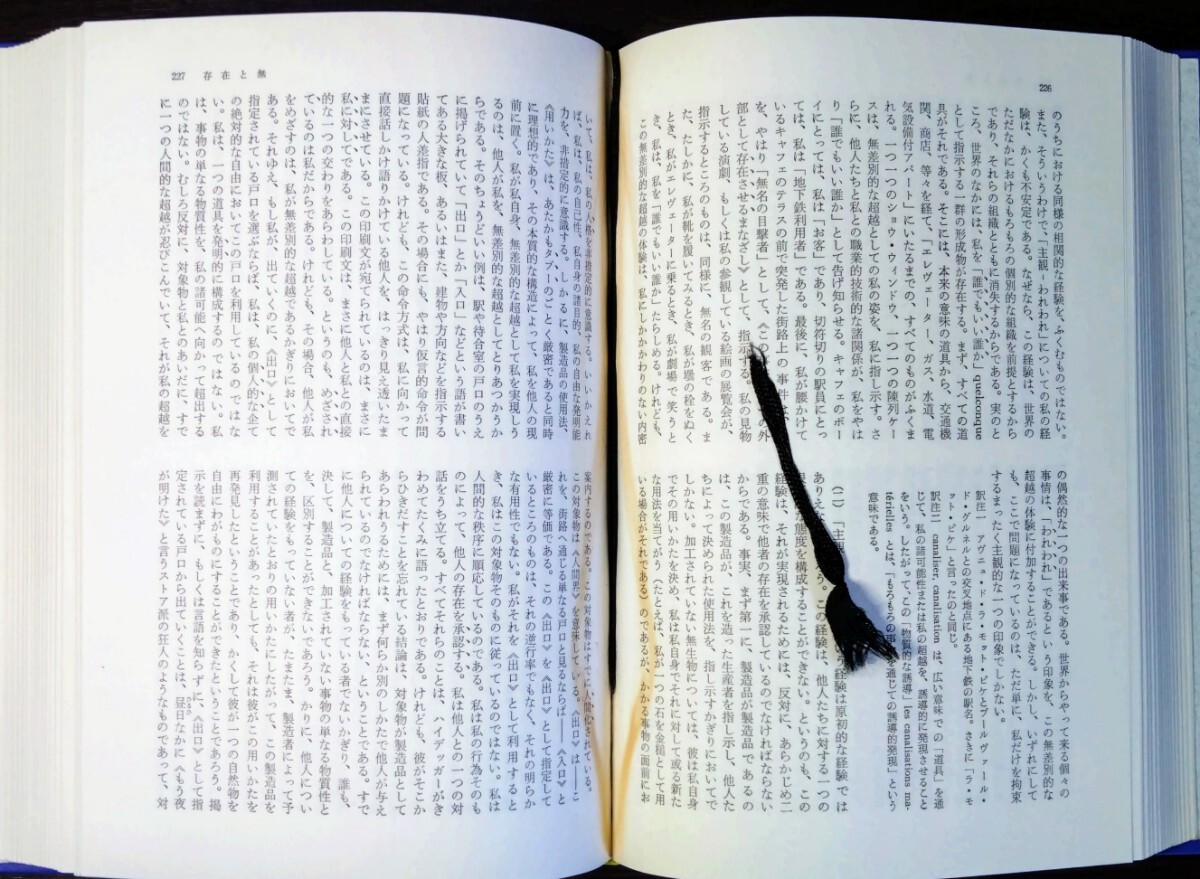 226
のうちにおける同様の相関的な経験を、ふくむものではない。
また、そういうわけで、「主観-われわれ」についての私の経
験は、かくも不安定である。なぜなら、この経験は、世界の
ただなかにおけるもろもろの個別的な組織を前提とするから
であり、それらの組織とともに消失するからである。実のと
ころ、世界のなかには、私を「誰でもいい誰か」quelconque
として指示する一群の形成物が存在する。まず、すべての道
具がそれである。そこには、本来の意味の道具から、交通機
関、商店、等々を経て、「エレヴェーター、ガス、水道、電
気設備付アパート」にいたるまでの、すべてのものがふくま
れる。一つ一つのショウ・ウィンドウ、一つ一つの陳列ケー
スは、無差別的な超越としての私の姿を、私に指し示す。さ
らに、他人たちと私との職業的技術的な諸関係が、私をやは
り「誰でもいい誰か」として告げ知らせる。キャフェのボー
イにとっては、私は「お客」であり、切符切りの駅員にとっ
ては、私は「地下鉄利用者」である。最後に、私が腰かけて
いるキャフェのテラスの前で突発した街路上の事件は、
を、やはり「無名の目撃者」として、《この の外
部として存在させるまなざし》として、指示する。私の見物
している演劇、もしくは私の参観している絵画の展覧会が、
指示するところのものは、同様に、無名の観客である。ま
た、たしかに、私が靴を履いてみるとき、私が壜の栓をぬく
とき、私がエレヴェーターに乗るとき、私が劇場で笑うと
き、私は、私を「誰でもいい誰か」たらしめる。けれども、
この無差別的な超越の体験は、私にしかかかわりのない内密
の偶然的な一つの出来事である。世界からやって来る個々の
事情は、「われわれ」であるという印象を、この無差別的な
超越の体験に付加することができる。しかし、いずれにして
も、ここで問題になっているのは、ただ単に、私だけを拘束
するまったく主観的な一つの印象でしかない。
訳注一 アヴニュ・ド・ラ・モット・ピケとブールヴァール・
ド・グルネルとの交叉地点にある地下鉄の駅名。さきに「ラ・モ
ット・ピケ」と言ったのと同じ。
訳注二 canaliser, canalisation は、広い意味での「道具」を通
じて、私の諸可能性または私の超越を、誘導的に発現させること
をいう。したがって、この「物質的な誘導」 les canalisations ma-
térielles とは、「もろもろの事 を通じての誘導的発現」という
意味である。
(二) 「主観 いう経験は原初的な経験では
ありえな ろう。この経験は、他人たちに対する一つの
な態度を構成することができない。というのも、この
経験は、それが実現されるためには、反対に、あらかじめ二
重の意味で他者の存在を承認しているのでなければならない
からである。事実、まず第一に、製造品が製造品であるの
は、この製造品が、これを造った生産者を指し示し、他人た
ちによって決められた使用法を、指し示すかぎりにおいてで
しかない。加工されていない無生物については、彼は私自身
でその用いかたを決め、私は私自身でそれに対して或る新た
な用法を当てがう(たとえば、私が一つの石を金槌として用
いる場合がそれである)のであるが、かかる事物の面前にお
227 存在と無
いて、私は、私の人格を非措定的に意識する。いいかえれ
ば、私は、私の自己性、私自身の諸目的、私の自由な発明能
力を、非措定的に意識する。しかるに、製造品の使用法、
《用いかた》は、あたかもタブーのごとく厳密であると同時
に理想的であり、その本質的な構造によって、私を他人の現
前に置く。私が私自身、無差別的な超越として私を実現しう
るのは、他人が私を、無差別的な超越としてとりあつかうか
らである。そのちょうどいい例は、駅や待合室の戸口のうえ
に掲げられていて「出口」とか「入口」などという語が書い
てある大きな板、あるいはまた、建物や方向などを指示する
貼紙の人差指である。その場合にも、やはり仮言的命令が問
題になっている。けれども、この命令方式は、私に向かって
直接話しかけ語りかけている他人を、はっきり見え透いたま
まにさせている。この印刷文が宛てられているのは、まさに
私に対してである。この印刷文は、まさに他人と私との直接
的な一つの交わりをあらわしている。というのも、めざされ
ているのは私だからである。けれども、その場合、他人が私
をめざすのは、私が無差別的な超越であるかぎりにおいてで
ある。それゆえ、もし私が、出ていくのに、《出口》として
指定されている戸口を選ぶならば、私は、私の個人的な企て
の絶対的な自由においてこの戸口を利用しているのではな
い。私は、一つの道具を発明的に構成するのではない。私
は、事物の単なる物質性を、私の諸可能へ向かって超出する
のではない。むしろ反対に、対象と私とのあいだに、すで
に一つの人間的な超越が忍びこんでいて、それが私の超越を
案内するのである。この対象物は、すでに人間化されている。
この対象物は《人間界》を意味している。《出口》は――こ
れを、街路へ通じる単なる戸口と見るならば――《入口》と
厳密に等価である。この《出口》を《出口》として指定して
いるところのものは、それの逆行率でもなく、それの明らか
な有用性でもない。私がそれを《出口》として利用すると
き、私はこの対象物そのものに従っているのではない。私は
人間的な秩序に順応しているのである。私は私の行為そのも
のによって、他人の存在を承認する。私は他人との一つの対
話をうち立てる。すべてそれらのことは、ハイデッガーがき
わめてたくみに語ったとおりである。けれども、彼がそこか
らひきだすことを忘れている結論は、対象物が製造品として
あらわれうるためには、まず何らか別のしかたで他人が与え
られているのでなければならない、ということである。すで
に他人についての経験をもっている者でないかぎり、誰も、
決して、製造品と、加工されていない事物の単なる物質性と
を、区別することができないであろう。かりに、他人につい
ての経験をもっていない者が、たまたま、製造者によって予
測されていたとおりの用いかたにしたがって、この製造品を
利用することがあったとしても、それは彼がこの用いかたを
再発見したということであり、かくして彼が一つの自然物を
自由にわがものにすることができたということであろう。掲
示を読まずに、もしくは言語を知らずに、《出口》として指
定されている戸口から出ていくことは、昼日なかに《もう夜
が明けた》と言うストア派の狂人のようなものであって、対